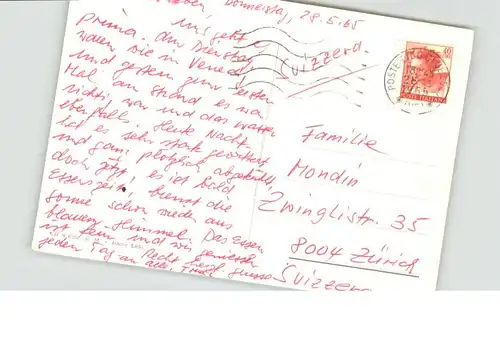 Donnerstag, 28.5.65
uns geht's
prima. Am Dienstag
waren wir in Venedig
und gestern zum ersten
Mal am Strand es war
richtig warm und das Wasser
ebenfalls. Heute Nacht
hat es sehr stark gewittert
und ganz plötzlich abgekühlt,
doch jetzt, es ist bald
Essenszeit, brennt die
Sonne schon wieder aus
blauem Himmel. Das Essen
ist fein und wir geniessen
jeden Tag an
Recht herzl. Grüsse
Svizzera
POSTE
40
POSTE ITALIANE
Familie
Mondin
Zwinglistr. 35
8004 Zürich
Svizzera